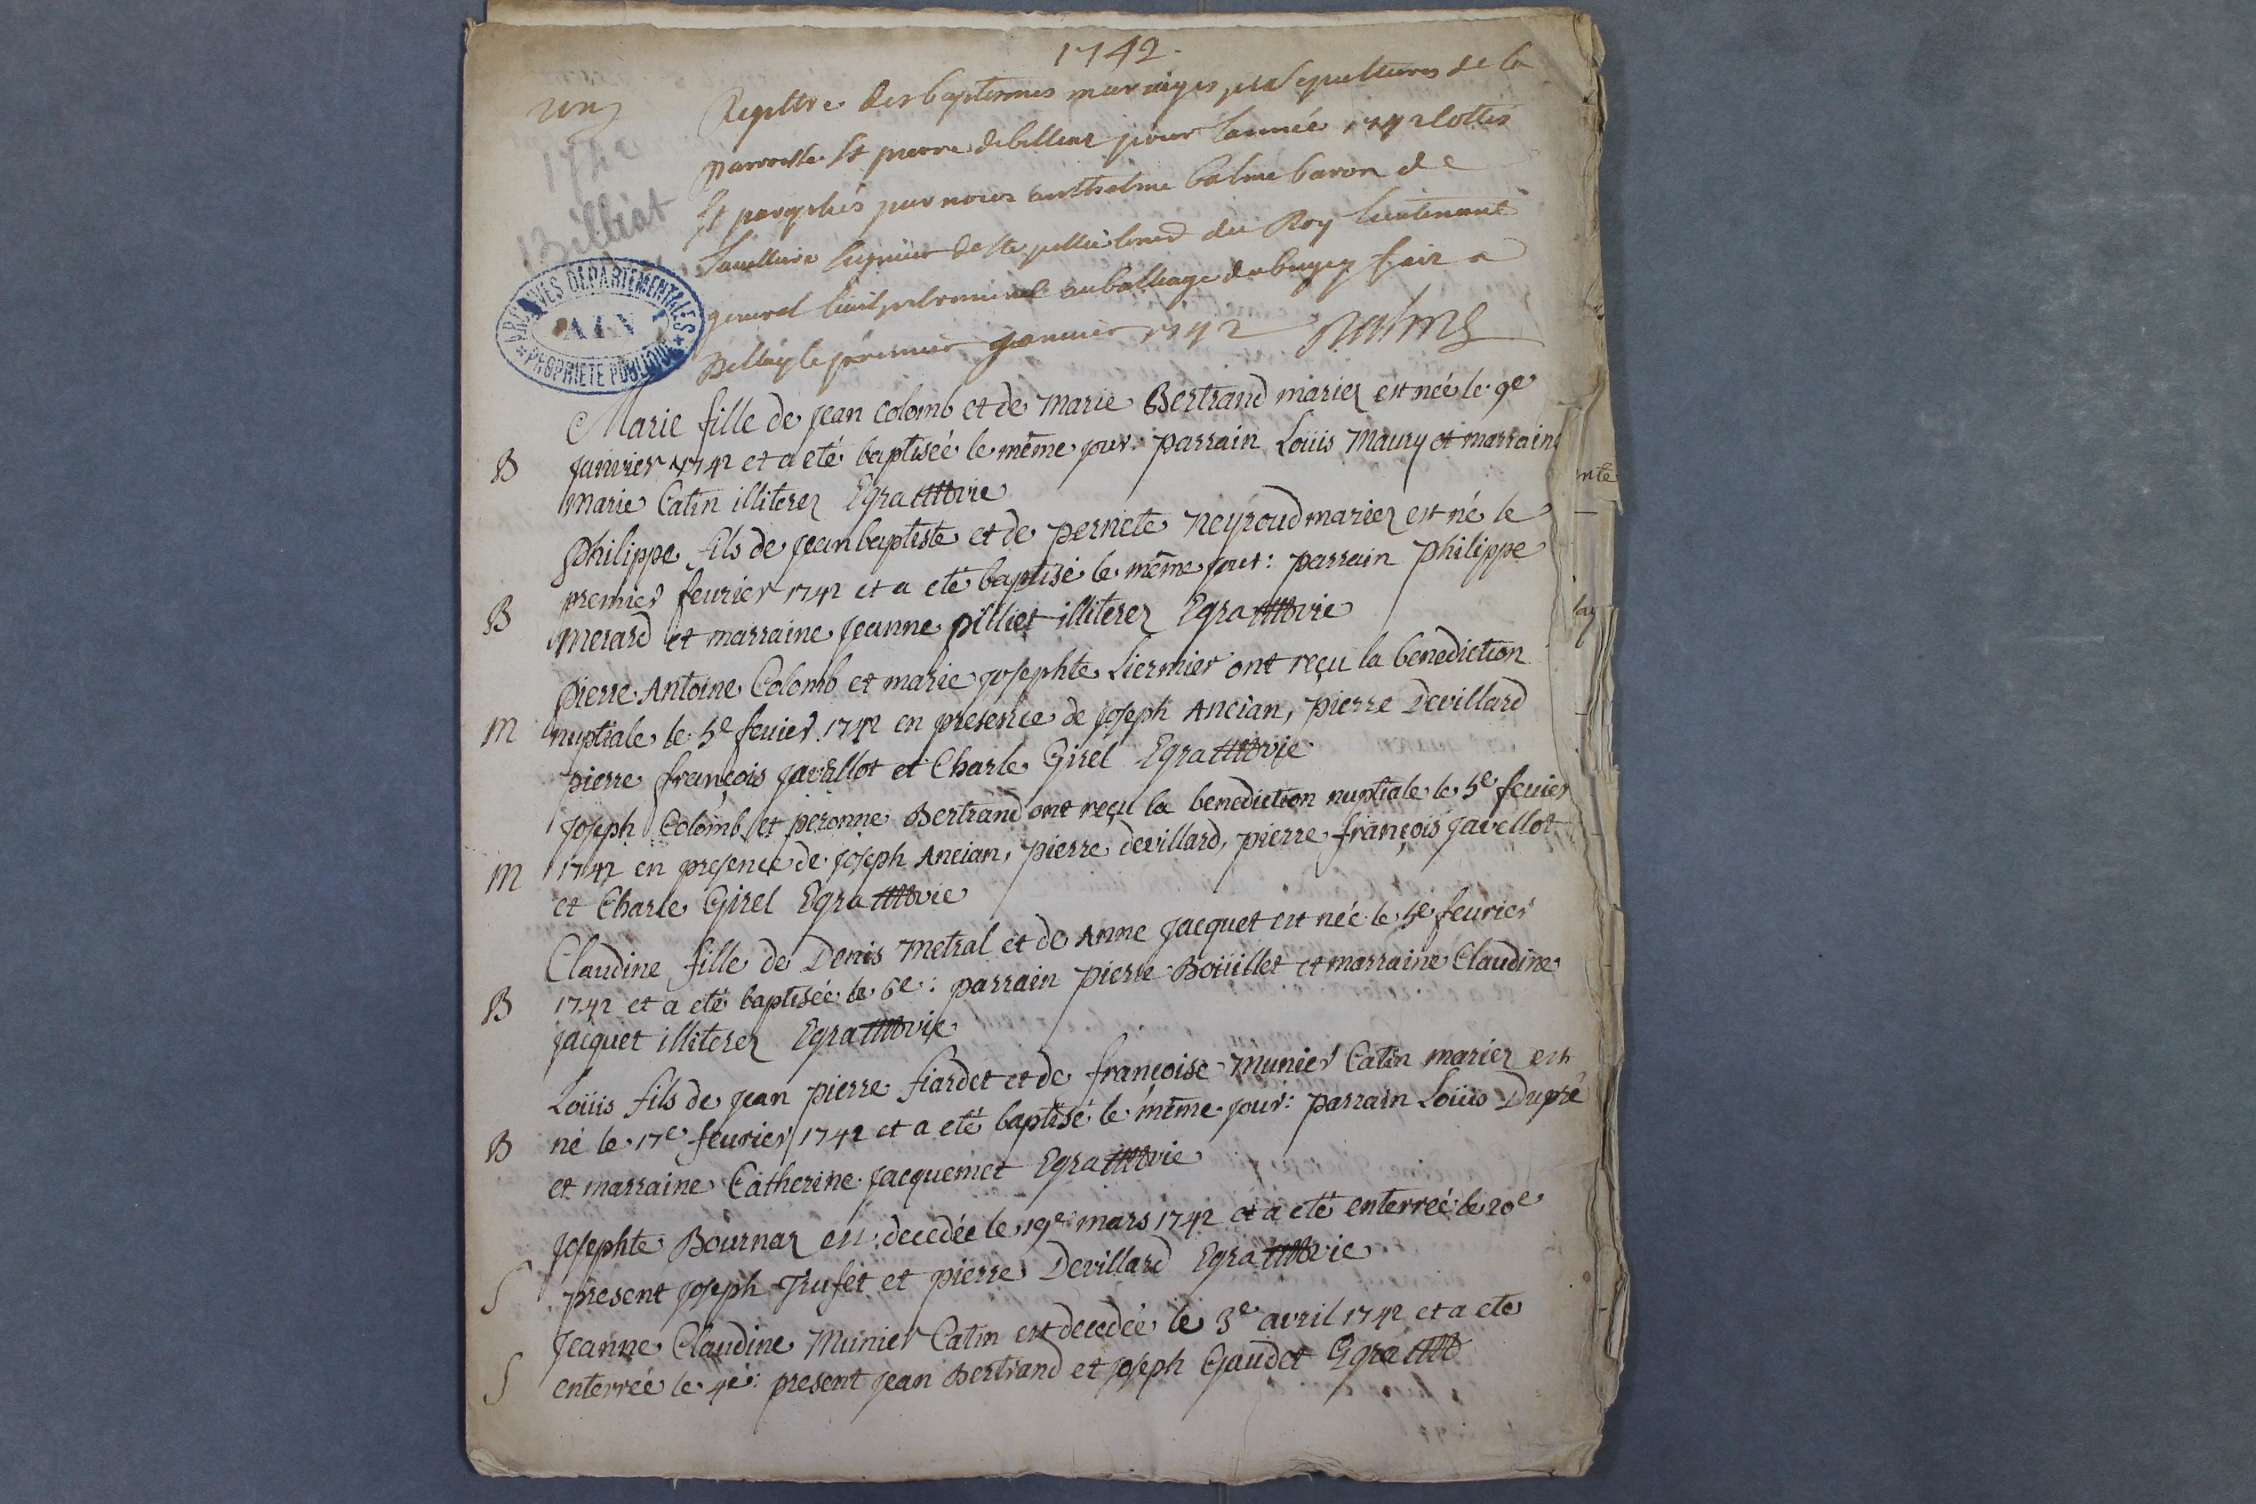 1742.
un
Registre des baptesmes mariages et sepultures de la
1742
parroisse St pierre de billiat pour l'année 1742 cottés
Billiat
Et paraphés par nous anthelme balme baron de
seigneur de Ste conseiller du Roy lieutenant
general civil et criminel au bailliage de bugey fait a
ARCHIVES DEPARTEMENTALES
AIN
PROPRIETE PUBLIQUE
Belley le premier janvier 1742 Balme
Marie fille de jean colomb et de Marie Bertrand mariez est née le 9e
B janvier 1742 et a eté baptisée le même jour: parrain Loüis Maury et marraine
Marie Catin illiterez Egra vie
philippe fils de jean baptiste et de pernete Neyroud mariez est né le
B premier feurier 1742 et a eté baptisé le même jour: parrain philippe
Merard et marraine jeanne pilliet illiterez Egra vie
pierre Antoine Colomb et marie josephte Liermier ont reçu la benediction
M nuptiale le 5e feuier 1742 en presence de joseph Ancian, pierre Devillard
pierre françois javillot et Charle Girel Egra vie
joseph Colomb et peronne Bertrand ont reçu la benediction nuptiale le 5e feuier
M 1742 en presence de joseph Ancian, pierre devillard, pierre françois javellot
et Charle Girel Egra vie
Claudine fille de Denis Metral et de Anne jacquet est née le 5e feurier
B 1742 et a eté baptisée le 6e: parrain pierre Boüillet et marraine Claudine
jacquet illiterez Egra vie
Loüis fils de jean pierre fiardet et de françoise Munier Catin mariez est
B né le 17e feurier 1742 et a eté baptisé le même jour: parrain Loüis Dupré
et marraine Catherine jacquemet Egra vie
josephte Bournaz est decedée le 19e mars 1742 et a eté enterreé le 20e
S present joseph Trufet et pierre Devillard Egra vie
jeanne Claudine Munier Catin est decedée le 3e avril 1742 et a eté
S enterreé le 4e: present jean Bertrand et joseph Gaudet Egra